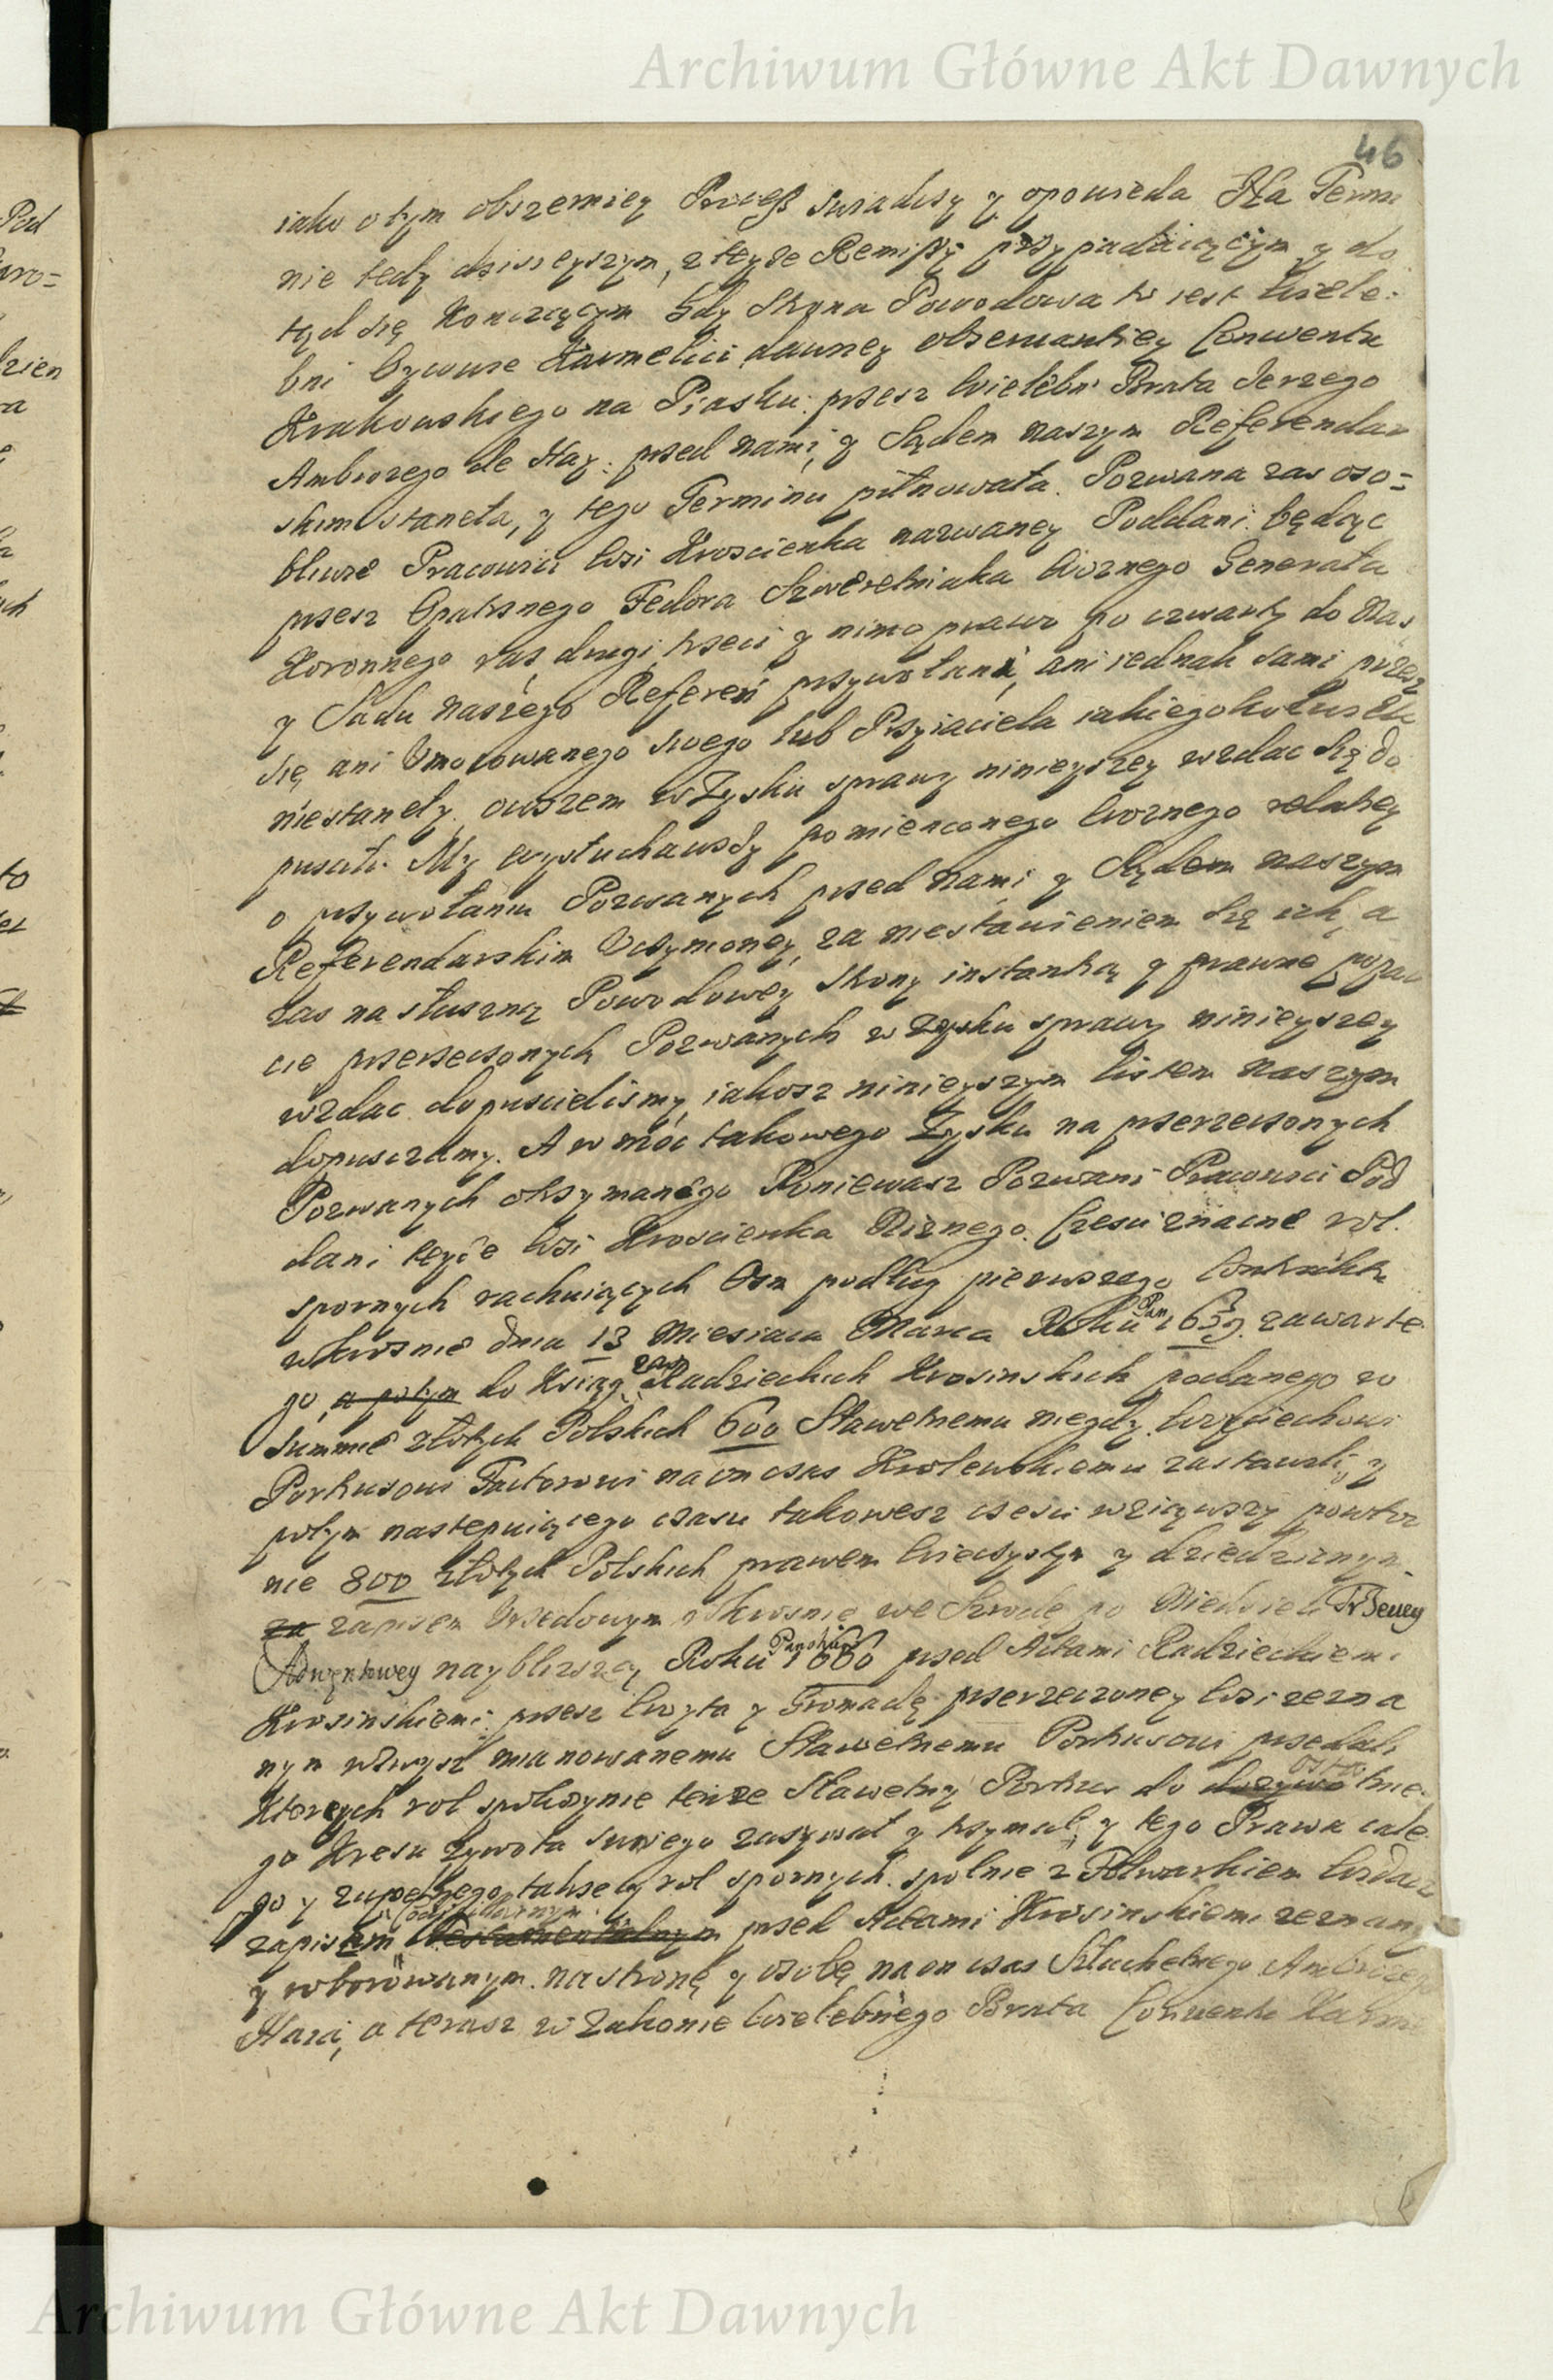 Archiwum Główne Akt Dawnych
46
iako o tym obszerniey Process swiadczy y opowieda Na Termi
nie tedy dzisieyszym, z teyze Remissy przypadaiącym y do
tąd się konczącym Gdy Strona Powodowa to iest Wiele:
bni Oycowie Karmelici dawney obserwantiey Conwentu
Krakowskiego na Piasku: przez Wielebn: Brata Jerzego
Ambrozego de Hay: przed nami, y Sądem naszym Referendar
skim staneła, y tego Terminu pilnowała. Pozwana zas oso=
bliwie Pracowici Wsi Kroscienka nazwaney Poddani będąc
przez Opatrznego Fedora Szweretniaka Woznego Generała
Koronnego raz, drugi, trzeci y nimo prawo po czwarty do Nas
y Sadu naszego Referen przywołani, ani iednak sami przez
się ani Umocowanego swego lub Przyiaciela iakiegokolwiek
niestaneły. owszem w Zysku sprawy ninieyszey wzdac się do
puscili. My wysłuchawszy pomienionego Woznego relatiey
o przywołaniu Pozwanych przed Nami y Sądem naszym
Referendarskim Uczynioney, za niestawieniem się ich, a
zas na słuszną Powodowey Strony instantią y prawne popar
cie przerzeczonych Pozwanych w zysku sprawy ninieyszey
wzdac dopuscielismy, iakosz ninieyszym listem Naszym
dopuszczamy. A w moc takowego Zysku na przerzeczonych
Pozwanych otrzymanego Poniewasz Pozwani Pracowici Pod
dani teyże Wsi Kroscienka Niznego. Czesci znacne rol.
spornych rachuiących Osm podług pierwszego Contraktu
w Krosnie dnia 13 Miesiaca Marca Roku Pan 1639. zawarte
go, a potym do Ksiąg zas Radzieckich Krosinskich podanego w
Summie złotych Polskich 600 Sławetnemu niegdy Woyciechowi
Portiusowi Factorowi na on czas Krolewskiemu zastawili, y
potym nastepuiącego czasu takowesz czesci wziąwszy powtor
nie 800 złotych Polskich prawem Wieczystym y dziedzicznym
za zapisem Urzedowym w Krosnie we Srode po Niedzieli Trzeciey
Adwentowey naybliszey Roku Panskiego 1660 przed Actami Radzieckiemi
Krosinskiemi przez Woyta y Gromadę przerzeczoney Wsi zezna
nym wzwysz mianowanemu Sławetnemu Portiusowi przedali
Ktorych rol spokoynie tenze Sławetny Portius do dozywo ostat tnie
go Kresu zywota swoiego zazywał y trzymał, y tego Prawa całe
go y zupełnego, takze y rol spornych spolnie z Folwarkiem
zapisem przed Actami Krosinskiemi zeznany
y roborowanym. na stronę y osobę na on czas Szlachetnego Ambrozego
Haia, a teraz w Zakonie Wielebnego Brata Conventu Karme
Archiwum Główne Akt Dawnych